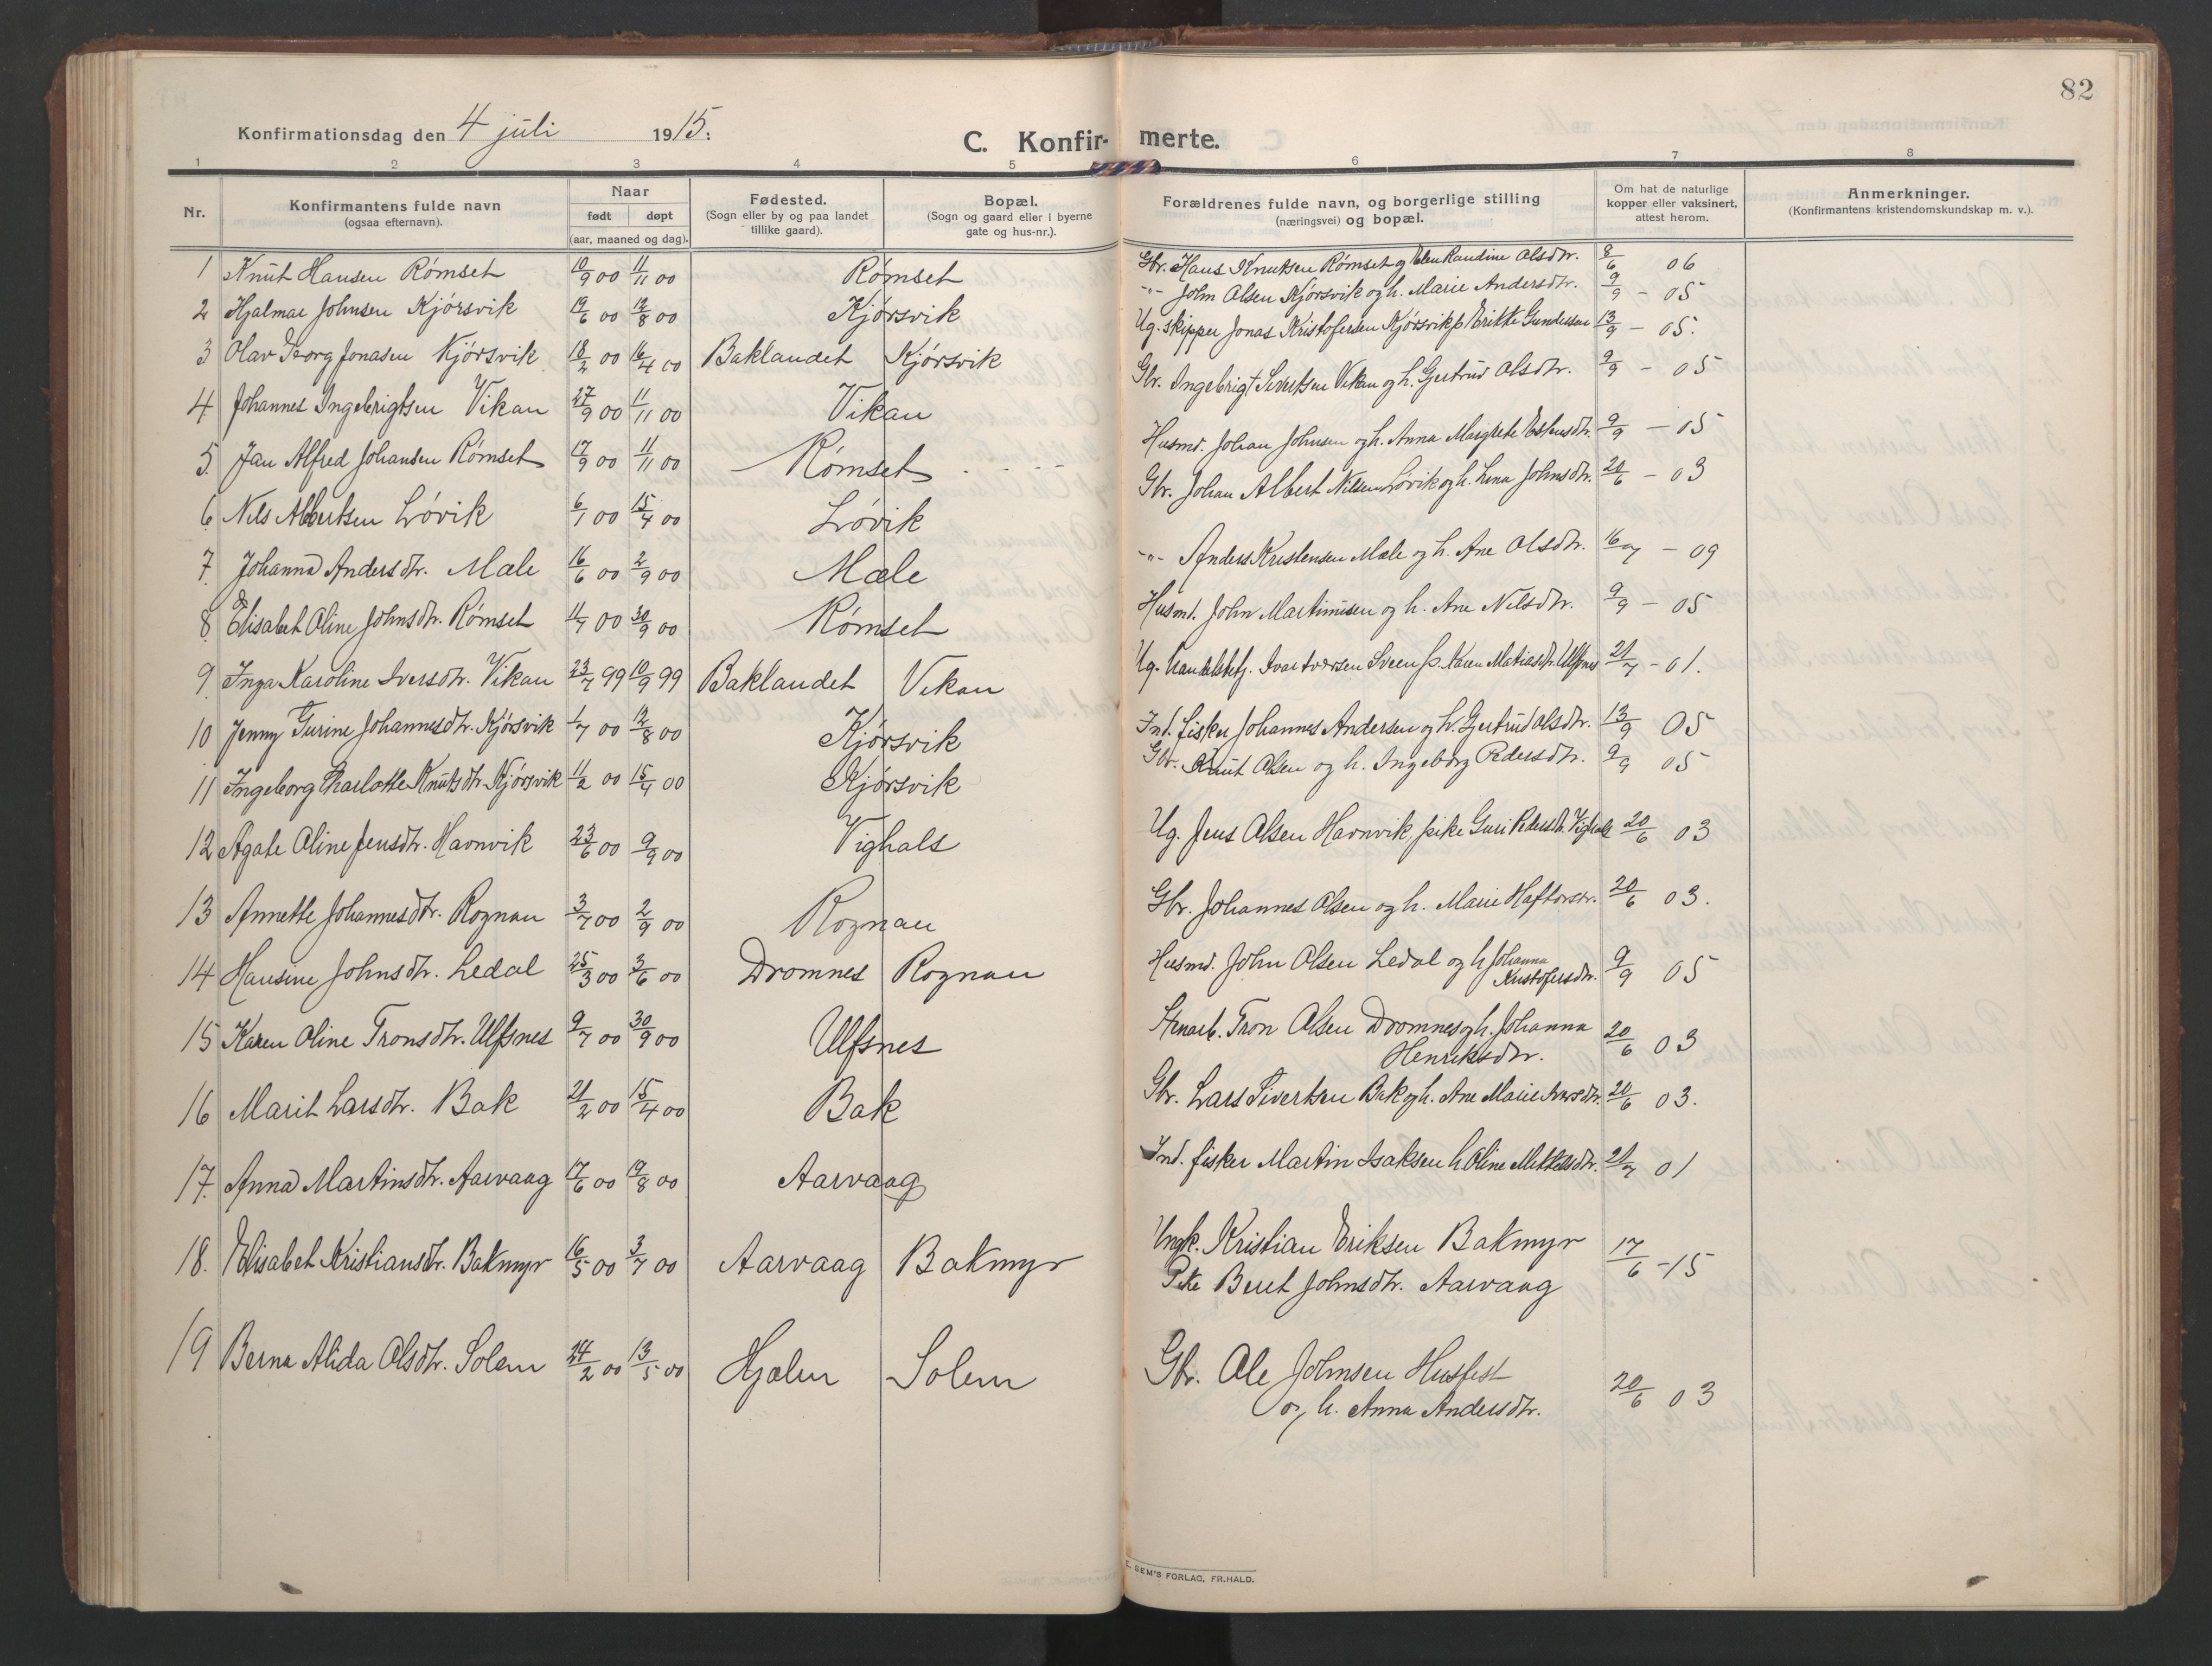 82
Konfirmationsdag den 4 juli 1915:
C. Konfir- merte.
1 2 3 4 5 6 7 8
Nr.
Konfirmantens fulde navn
(ogsaa efternavn).
Naar
født døpt
(aar, maaned og dag).
Fødested.
(Sogn eller by og paa landet
tillike gaard).
Bopæl.
(Sogn og gaard eller i byerne
gate og hus-nr.).
Forældrenes fulde navn, og borgerlige stilling
(næringsvei) og bopæl.
Om hat de naturlige
kopper eller vaksinert,
attest herom.
Anmerkninger.
(Konfirmantens kristendomskundskap m. v.).
1 Knut Hansen Rømset 10/9 00 11/11 00 Rømset Gbr. Hans Knutsen Rømset og Randine Olsdtr. 8/6 06
2 Hjalmar Johnsen Kjørsvik 19/6 00 12/8 00 Kjørsvik -"- John Olsen Kjørsvik og h. Marie Andersdtr. 9/9 - 05
3 Olav Georg Jonasen Kjørsvik 18/2 00 16/4 00 Baklandet Kjørsvik Ug. skipper Jonas Kristofersen Kjørsvik p. Erikke Gundersen 13/9 - 05.
4 Johannes Ingebrigtsen Vikan 27/9 00 11/11 00 Vikan Gbr. Ingebrigt Sivertsen Vikan og h. Gjertrud Olsdtr. 9/9 - 05
5. Jan Alfred Johansen Rømset 17/9 00 11/11 00 Rømset Husmd. Johan Johnsen og h. Anna Margrete Estensdtr. 9/9 - 05
6 Nils Albertsen Løvik 6/1 00 15/4 00 Løvik Gbr. Johan Albert Nilsen Løvik og h. Lina Johnsdtr. 20/6 - 03
7. Johanna Andersdtr. Mæle 16/6 00 2/9 00 Mæle -"- Anders Kristensen Mæle og h. Ane Olsdtr. 16/7 - 09
8 Elisabet Oline Johnsdtr. Rømset 11/7 00 30/9 00 Rømset Husmd. John Martinusen og h. Ane Nilsdtr. 9/9 - 05
9 Inga Karoline Iversdtr. Vikan 23/7 99 10/9 99 Baklandet Vikan Ug. handelsbetj. Ivar Iversen Sveen p. Karen Matiasdtr. Ulfsnes 21/7 - 01.
10 Jenny Gurine Johannesdtr. Kjørsvik 1/7 00 12/8 00 Kjørsvik Ind. fisker Johannes Andersen og h. Gjertrud Olsdtr. 13/9 05
11 Ingeborg Charlotte Knutsdtr. Kjørsvik 11/2 00 15/4 00 Kjørsvik Gbr. Knut Olsen og h. Ingeborg Pedersdtr. 9/9 05
12 Agate Oline Jensdtr. Havnvik 23/6 00 9/9 00 Vighals Ug. Jens Olsen Havnvik, pike Guri Pedersdtr. Vighals 20/6 03
13 Annette Johannesdtr. Rognan 3/7 00 2/9 00 Rognan Gbr. Johannes Olsen og h. Marie Haftorsdtr. 20/6 03.
14 Hansine Johnsdtr. Ledal 25/3 00 3/6 00 Dromnes Rognan Husmd. John Olsen Ledal og h. Johanna
Kristofersdtr. 9/9 05
15 Karen Oline Tronsdtr. Ulfsnes 9/7 00 30/9 00 Ulfsnes Stenarb. Tron Olsen Dromnes og h. Johanna
Henriksdtr. 20/6 03
16 Marit Larsdtr. Bak 21/2 00 15/4 00 Bak Gbr. Lars Sivertsen Bak og h. Ane Marie Iversdtr. 20/6 03.
17. Anna Martinsdtr. Aarvaag 17/6 00 19/8 00 Aarvaag Ind. fisker Martin Isaksen h. Oline Mikkelsdtr. 21/7 01
18. Elisabet Kristiansdtr. Bakmyr 16/5 00 3/7 00 Aarvaag Bakmyr Ungk. Kristian Eriksen Bakmyr
Pike Beret Johnsdtr. Aarvaag 17/6 - 15
19 Berna Alida Olsdtr. Solem 24/2 00 13/5 00 Hjælen Solem Gbr. Ole Johnsen Husfest
og h. Anna Andersdtr. 20/6 03
E. SEM'S FORLAG, FR.HALD.